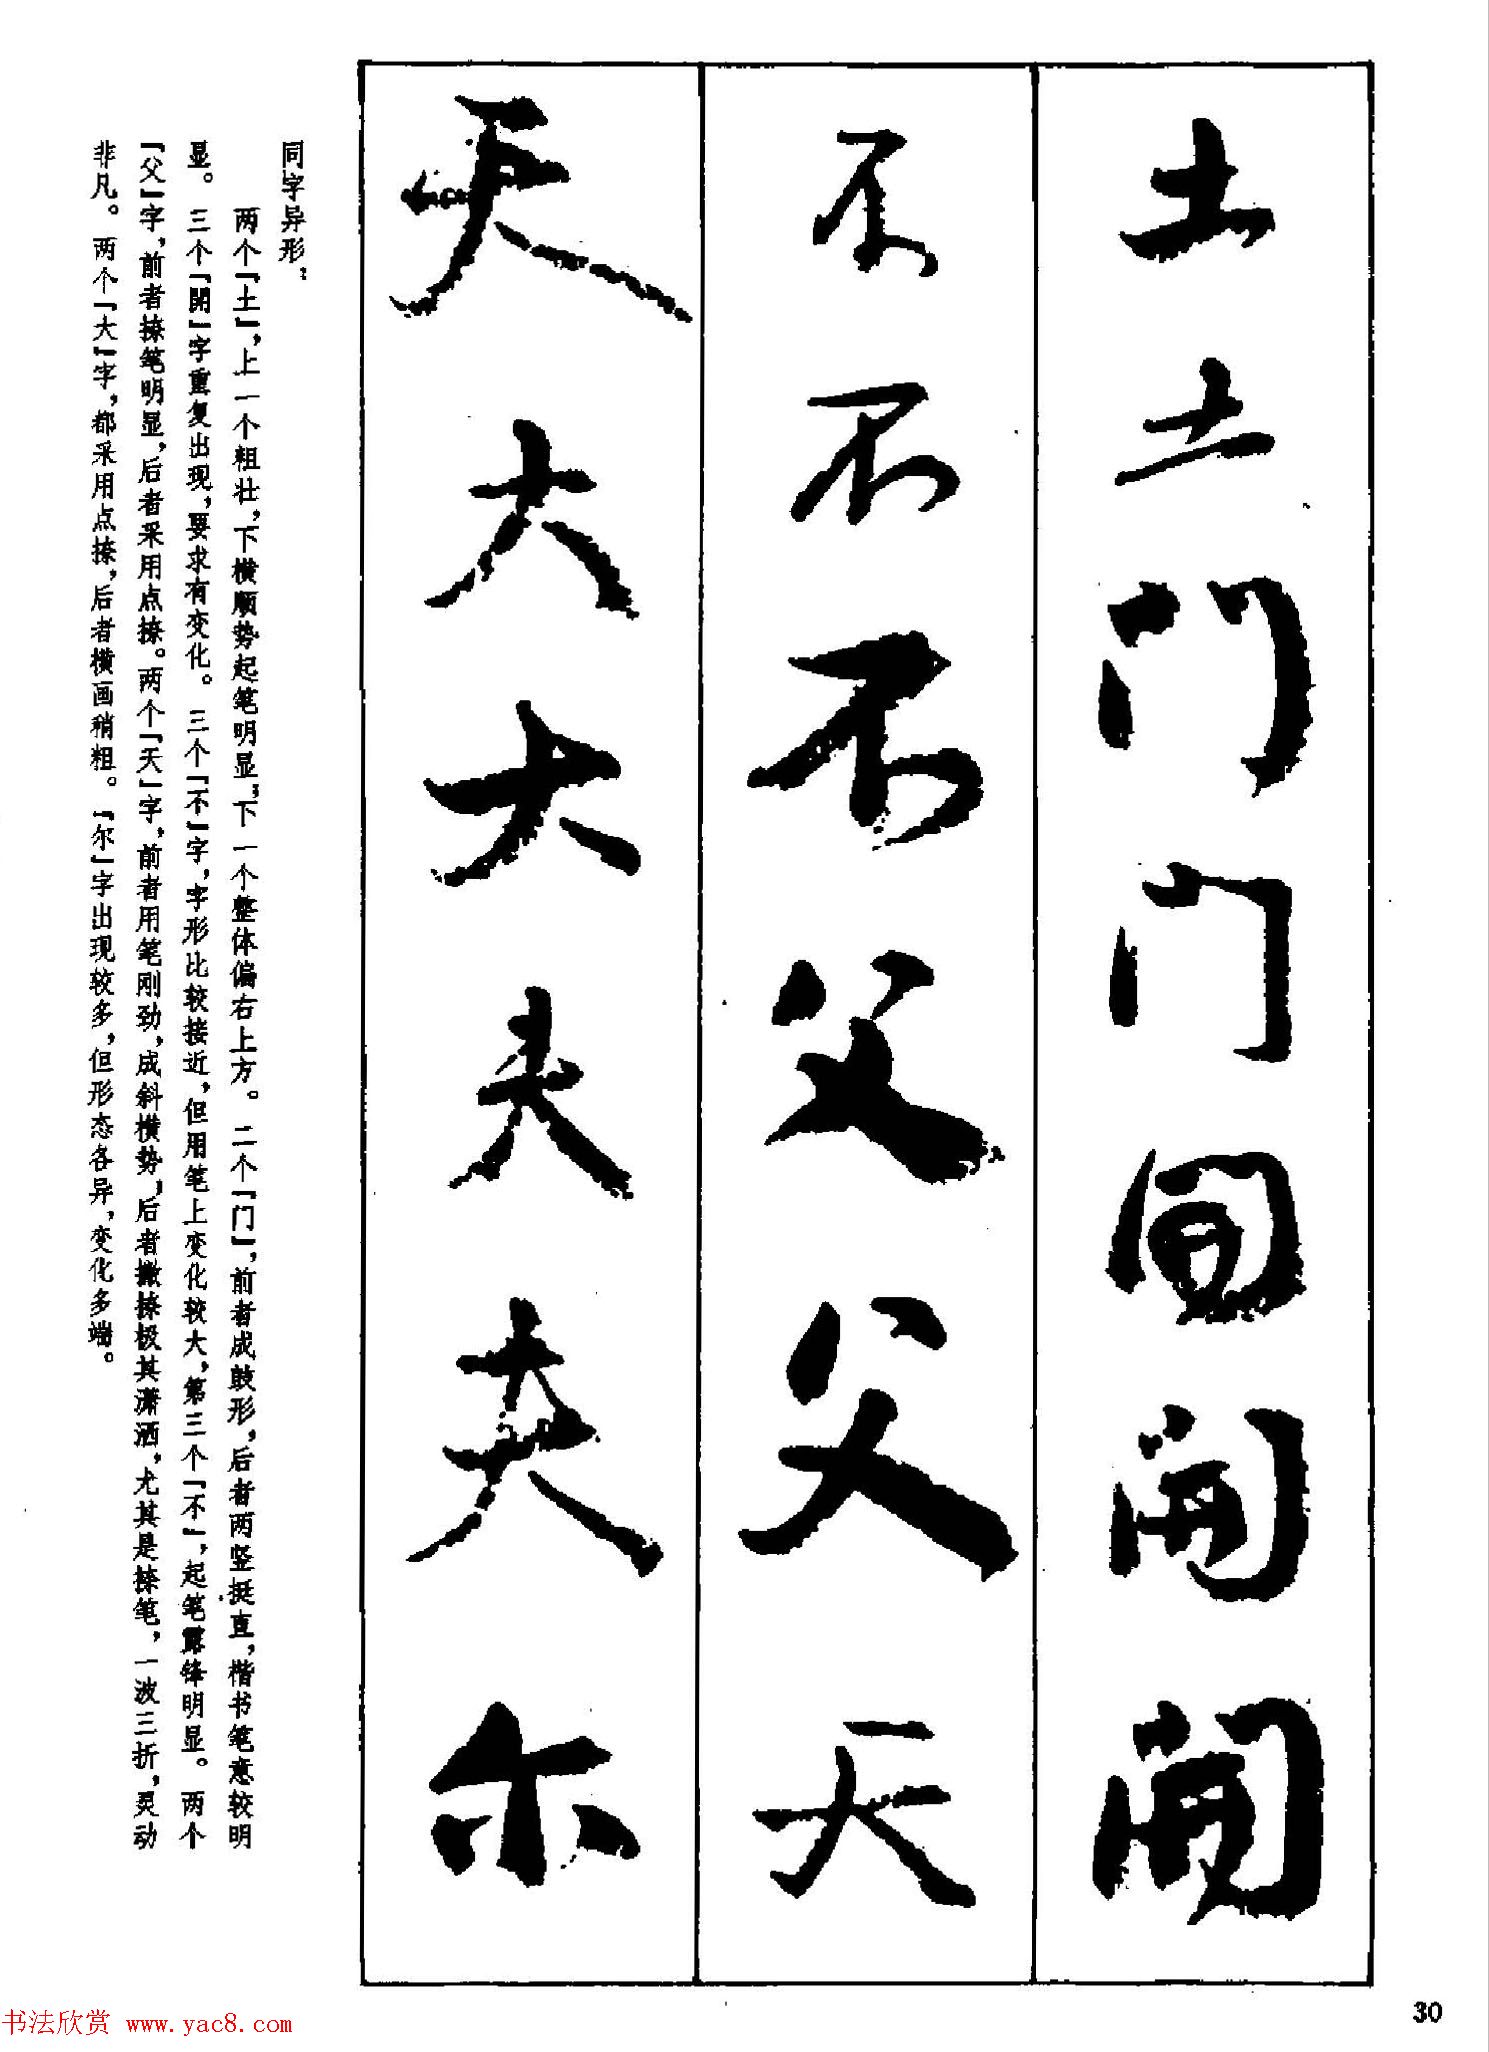 土土门门開開開
不不不父父天
天大大夫夫尔
同字异形：
两个「土」，上一个粗壮，下横顺势起笔明显，下一个整体偏右上方。二个「门」，前者成鼓形，后者两竖挺直，楷书笔意较明
显。三个「開」字重复出现，要求有变化。三个「不」字，字形比较接近，但用笔上变化较大，第三个「不」，起笔露锋明显。两个
「父」字，前者捺笔明显，后者采用点捺。两个「天」字，前者用笔刚劲，成斜横势，后者撇捺极其潇洒，尤其是捺笔，一波三折，灵动
非凡。两个「大」字，都采用点捺，后者横画稍粗。「尔」字出现较多，但形态各异，变化多端。
30
书法欣赏 www.yac8.com